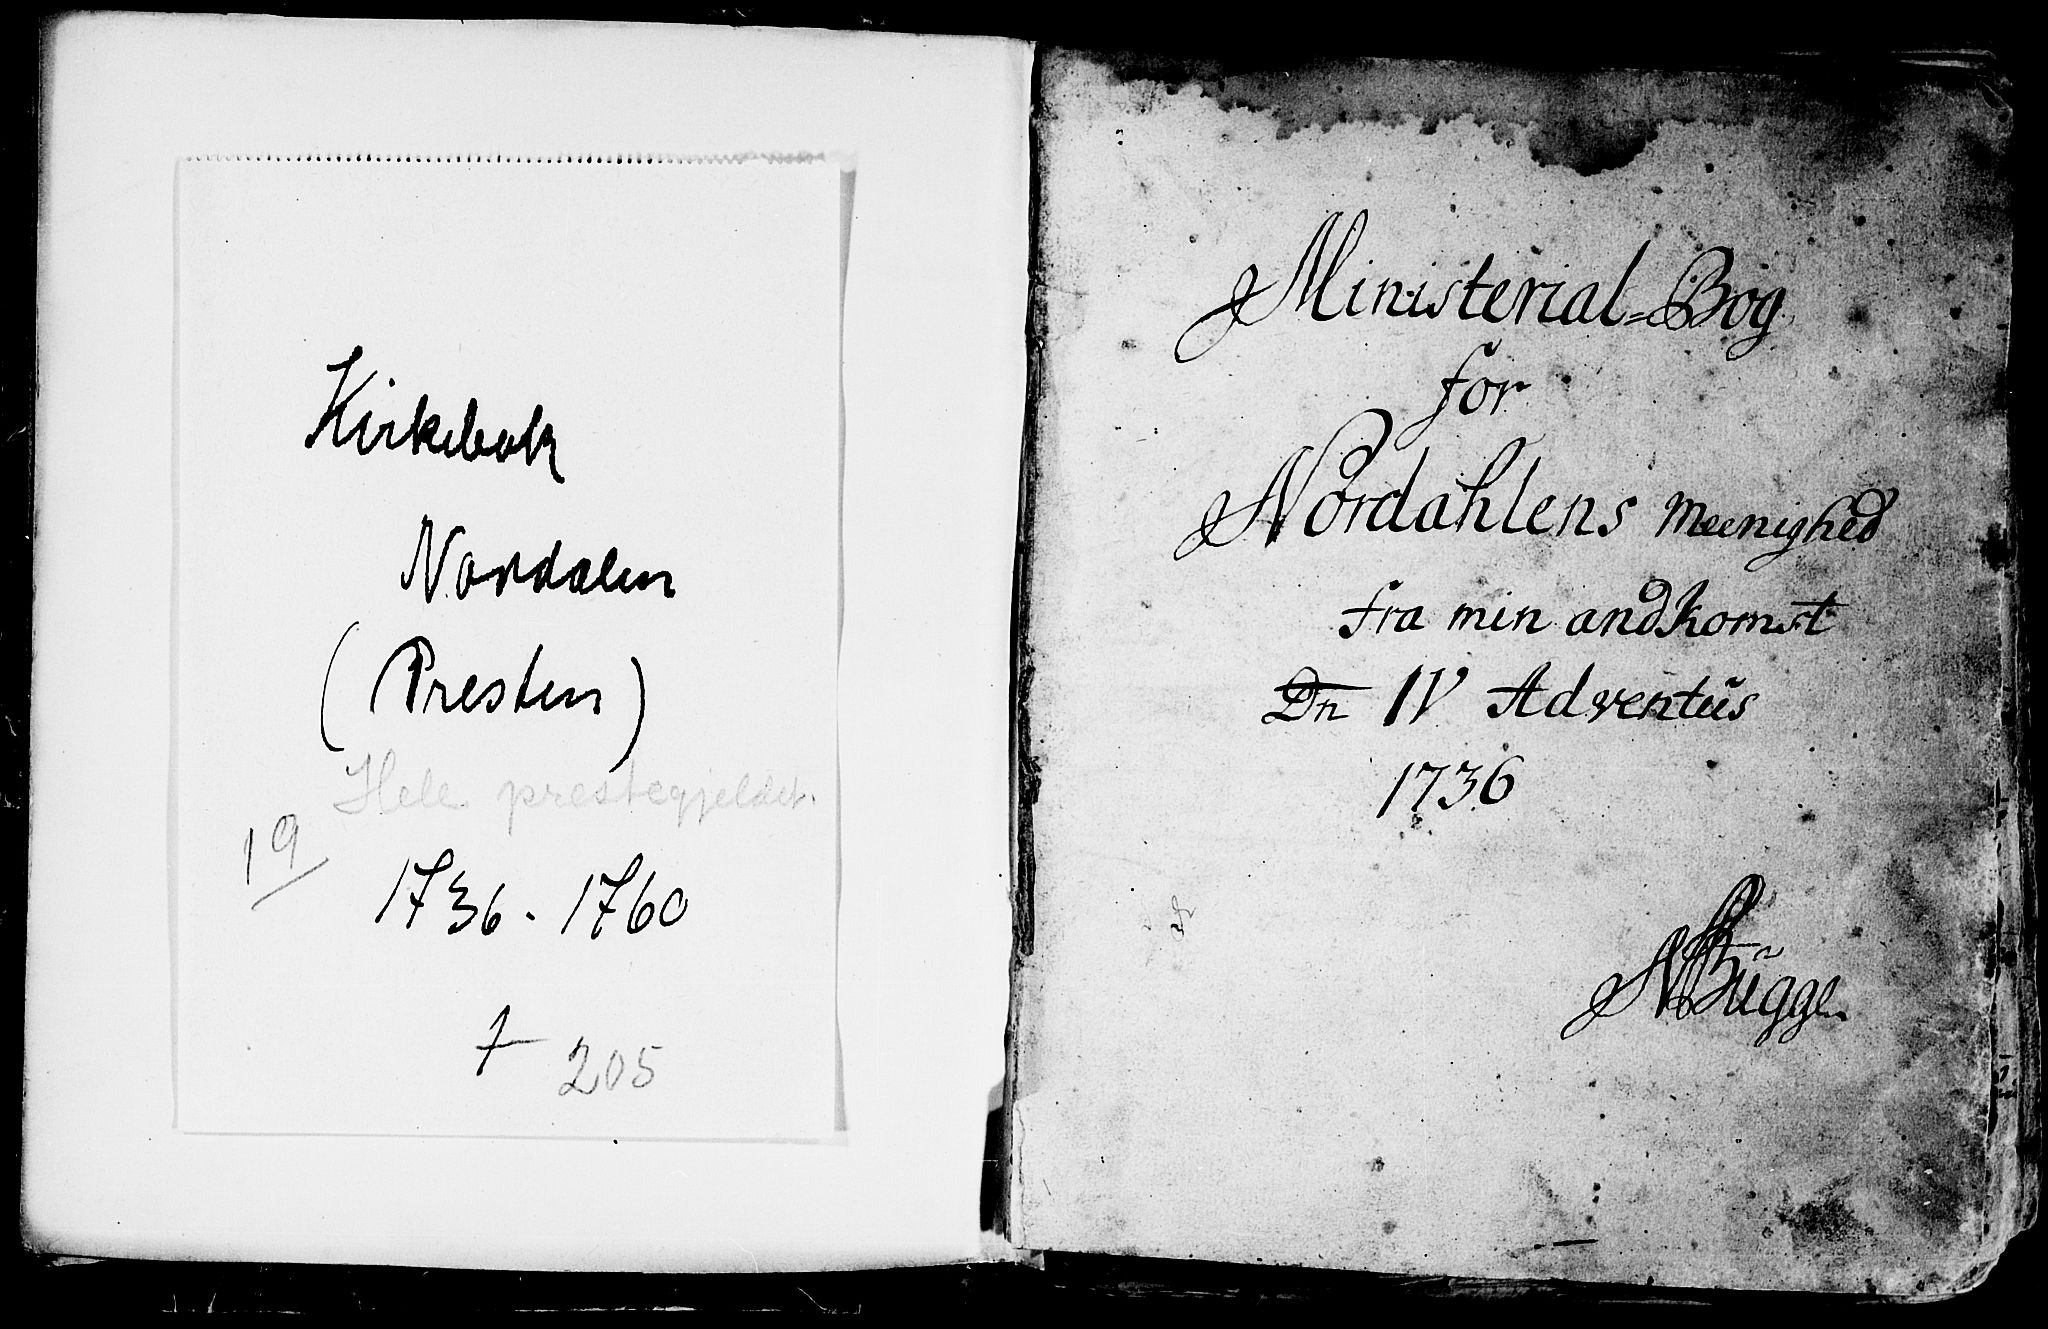 Kirkebok
Nordalen
(Presten)
Hele prestegjeldet.
19
1736 - 1760
205
Ministerial=Bog
for
Nordahlens Meenighed
fra min andkomst
Dn IV Adventüs
1736
Bügge